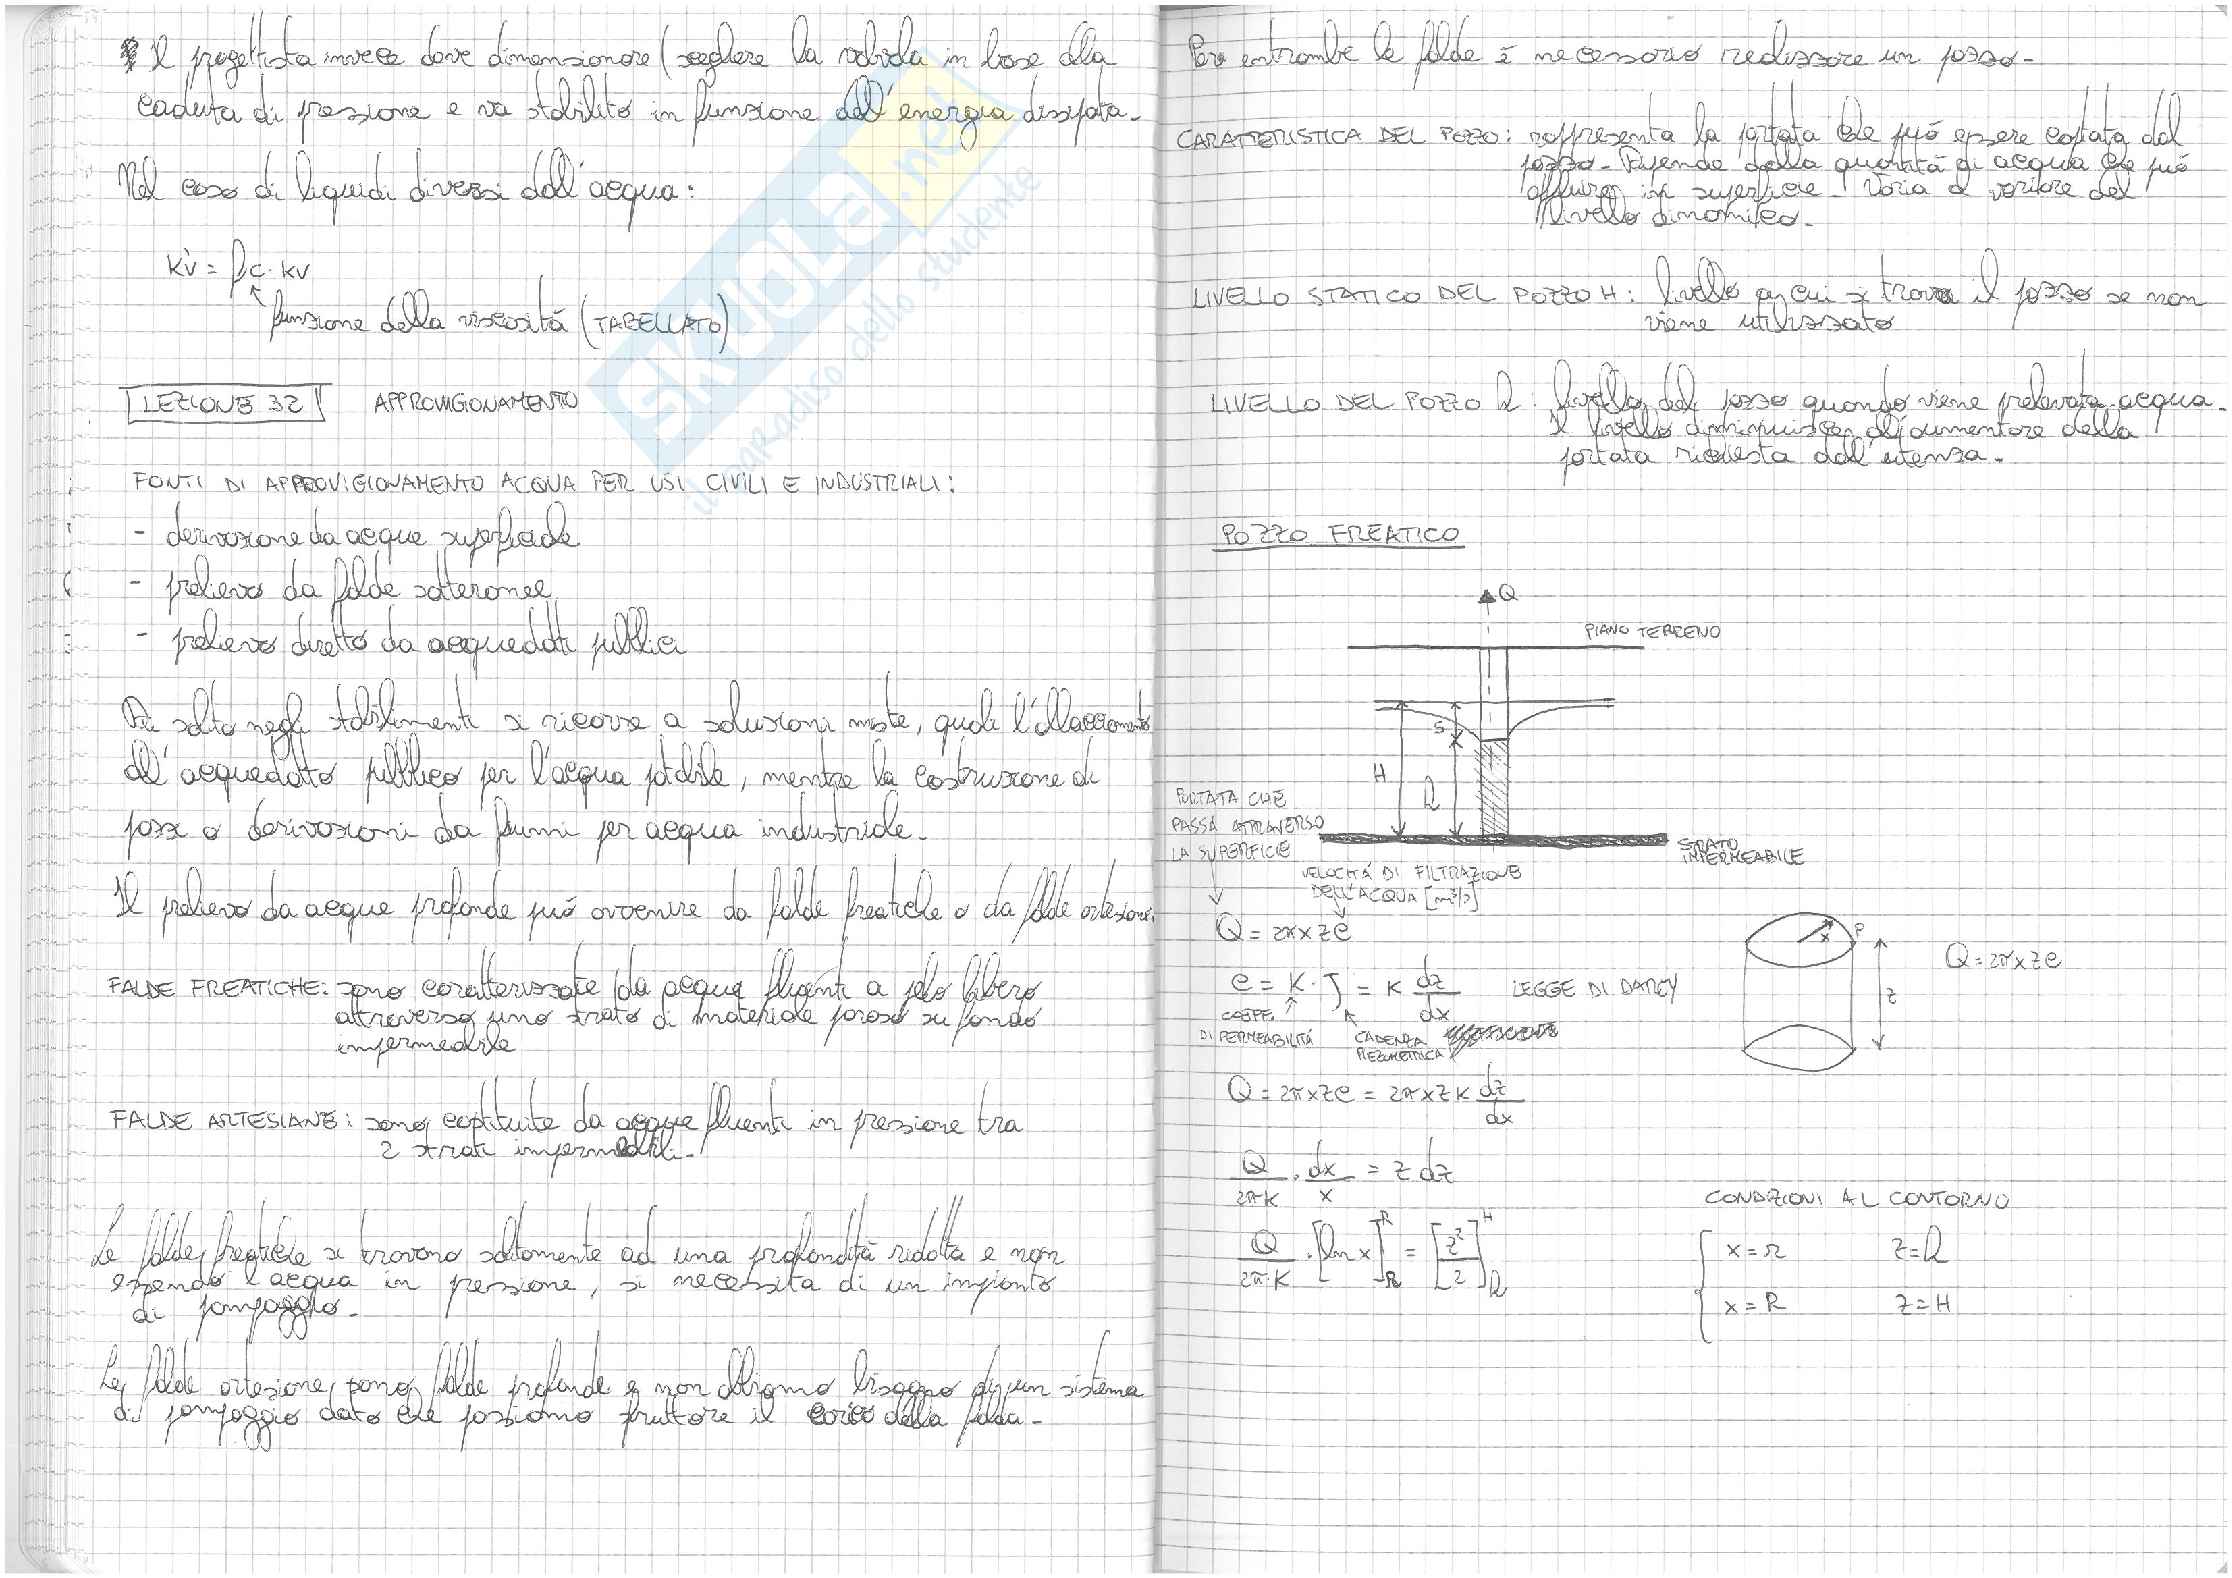 Il progettista invece deve dimensionare (scegliere la valvola in base alla
caduta di pressione e va stabilito in funzione dell'energia dissipata.
Nel caso di liquidi diversi dall'acqua:
Kv' = fc · Kv
funzione della viscosità (TABELLATO)
LEZIONE 32 APPROVIGIONAMENTO
FONTI DI APPROVIGIONAMENTO ACQUA PER USI CIVILI E INDUSTRIALI:
- derivazione da acque superficiale
- prelievo da falde sotterranee
- prelievo diretto da acquedotti pubblici
Di solito negli stabilimenti si ricorre a soluzioni miste, quale l'allacciamento
all'acquedotto pubblico per l'acqua potabile, mentre la costruzione di
pozzi o derivazioni da fiumi per acqua industriale.
Il prelievo da acque profonde può avvenire da falde freatiche o da falde artesiane.
FALDE FREATICHE: sono caratterizzate da acque fluenti a pelo libero
attraverso uno strato di materiale poroso su fondo
impermeabile
FALDE ARTESIANE: sono costituite da acque fluenti in pressione tra
2 strati impermeabili.
Le falde freatiche si trovano solitamente ad una profondità ridotta e non
essendo l'acqua in pressione, si necessita di un impianto
di pompaggio.
Le falde artesiane sono falde profonde e non abbiamo bisogno di un sistema
di pompaggio dato che possiamo sfruttare il carico della falda.
SKUOLA.net
il paradiso dello studente
Per entrambe le falde è necessario realizzare un pozzo.
CARATTERISTICA DEL POZZO: rappresenta la portata che può essere captata dal
pozzo. Dipende dalla quantità di acqua che può
affluire in superficie. Varia al variare del
livello dinamico.
LIVELLO STATICO DEL POZZO H: livello a cui si trova il pozzo se non
viene utilizzato
LIVELLO DEL POZZO h: livello del pozzo quando viene prelevata acqua.
Il livello diminuisce all'aumentare della
portata richiesta dall'utenza.
POZZO FREATICO
Q
PIANO TERRENO
S
H
h
STRATO
IMPERMEABILE
PORTATA CHE
PASSA ATTRAVERSO
LA SUPERFICIE
VELOCITÁ DI FILTRAZIONE
DELL'ACQUA [m³/s]
Q = 2πxzc
c = K · J = K dz/dx LEGGE DI DARCY
COEFF.
DI PERMEABILITÁ
CADENZA
PIEZOMETRICA
x P
z
Q = 2πxzc
Q = 2πxzc = 2πxzK dz/dx
Q/2πK · dx/x = z dz
Q/2π·K · [ln x]_R^R = [z²/2]_h^H
CONDIZIONI AL CONTORNO
x = r z = h
x = R z = H